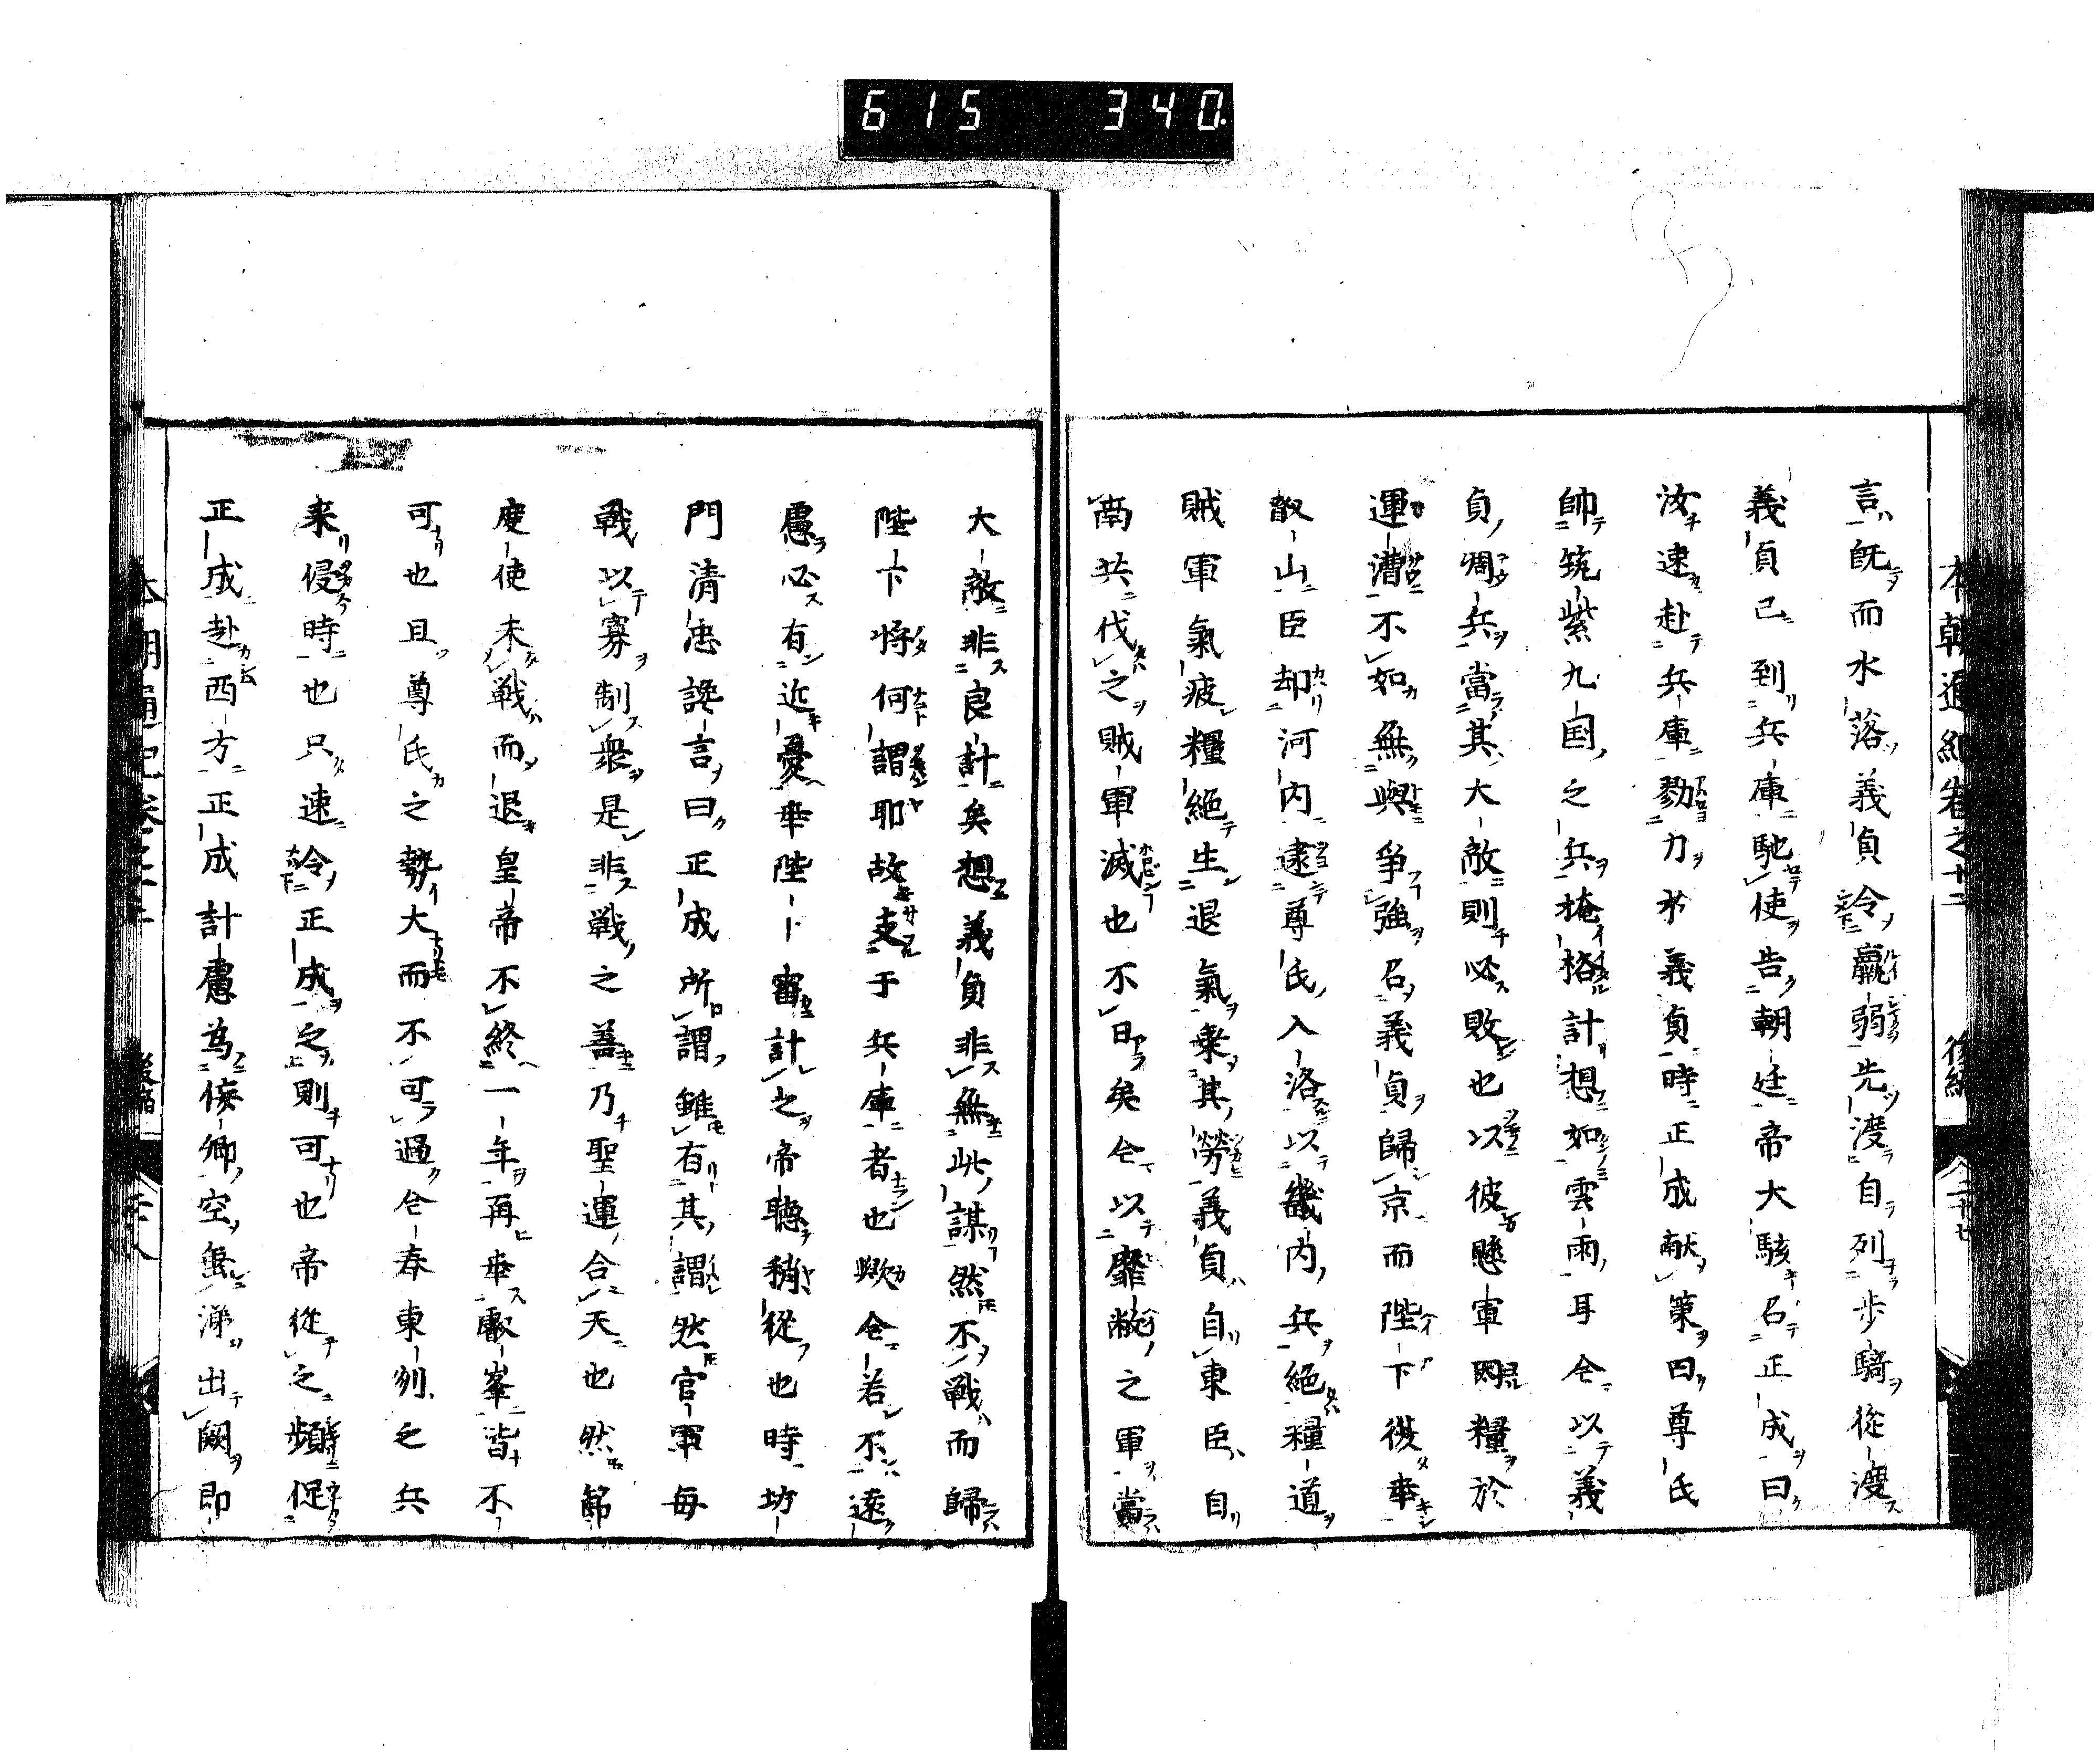 615 340.
本朝通紀卷之十二 後編 二十七
言既而水落義貞令羸弱先渡自列歩騎從渡
義貞已到兵庫馳使告朝廷帝大駭召正成曰
汝速赴兵庫勠力於義貞時正成献策曰尊氏
帥筑紫九国之兵掩格計想如雲雨耳今以義
貞凋兵當其大敵則必敗也以彼懸軍罔糧於
運漕不如無與爭強召義貞歸京而陛下復幸
叡山臣却河内逮尊氏入洛以畿内兵絕糧道
賊軍氣疲糧絕生退氣乗其勞義貞自東臣自
南共伐之賊軍滅也不日矣今以靡敝之軍當
大敵非良計矣想義貞非無此謀然不戰而歸
陛下將何謂耶故支于兵庫者也歟今若不遠
慮必有近憂幸陛下審計之帝聴稍從也時坊
門清忠讒言曰正成所謂雖有其謂然官軍毎
戰以寡制衆是非戦之善乃聖運合天也然節
度使未戦而退皇帝不終一年再幸叡峯皆不
可也且尊氏之勢大而不可過今春東列之兵
来侵時也只速令正成之則可也帝從之頻促
正成赴西方正成計慮為侫卿空垂涕出闕即